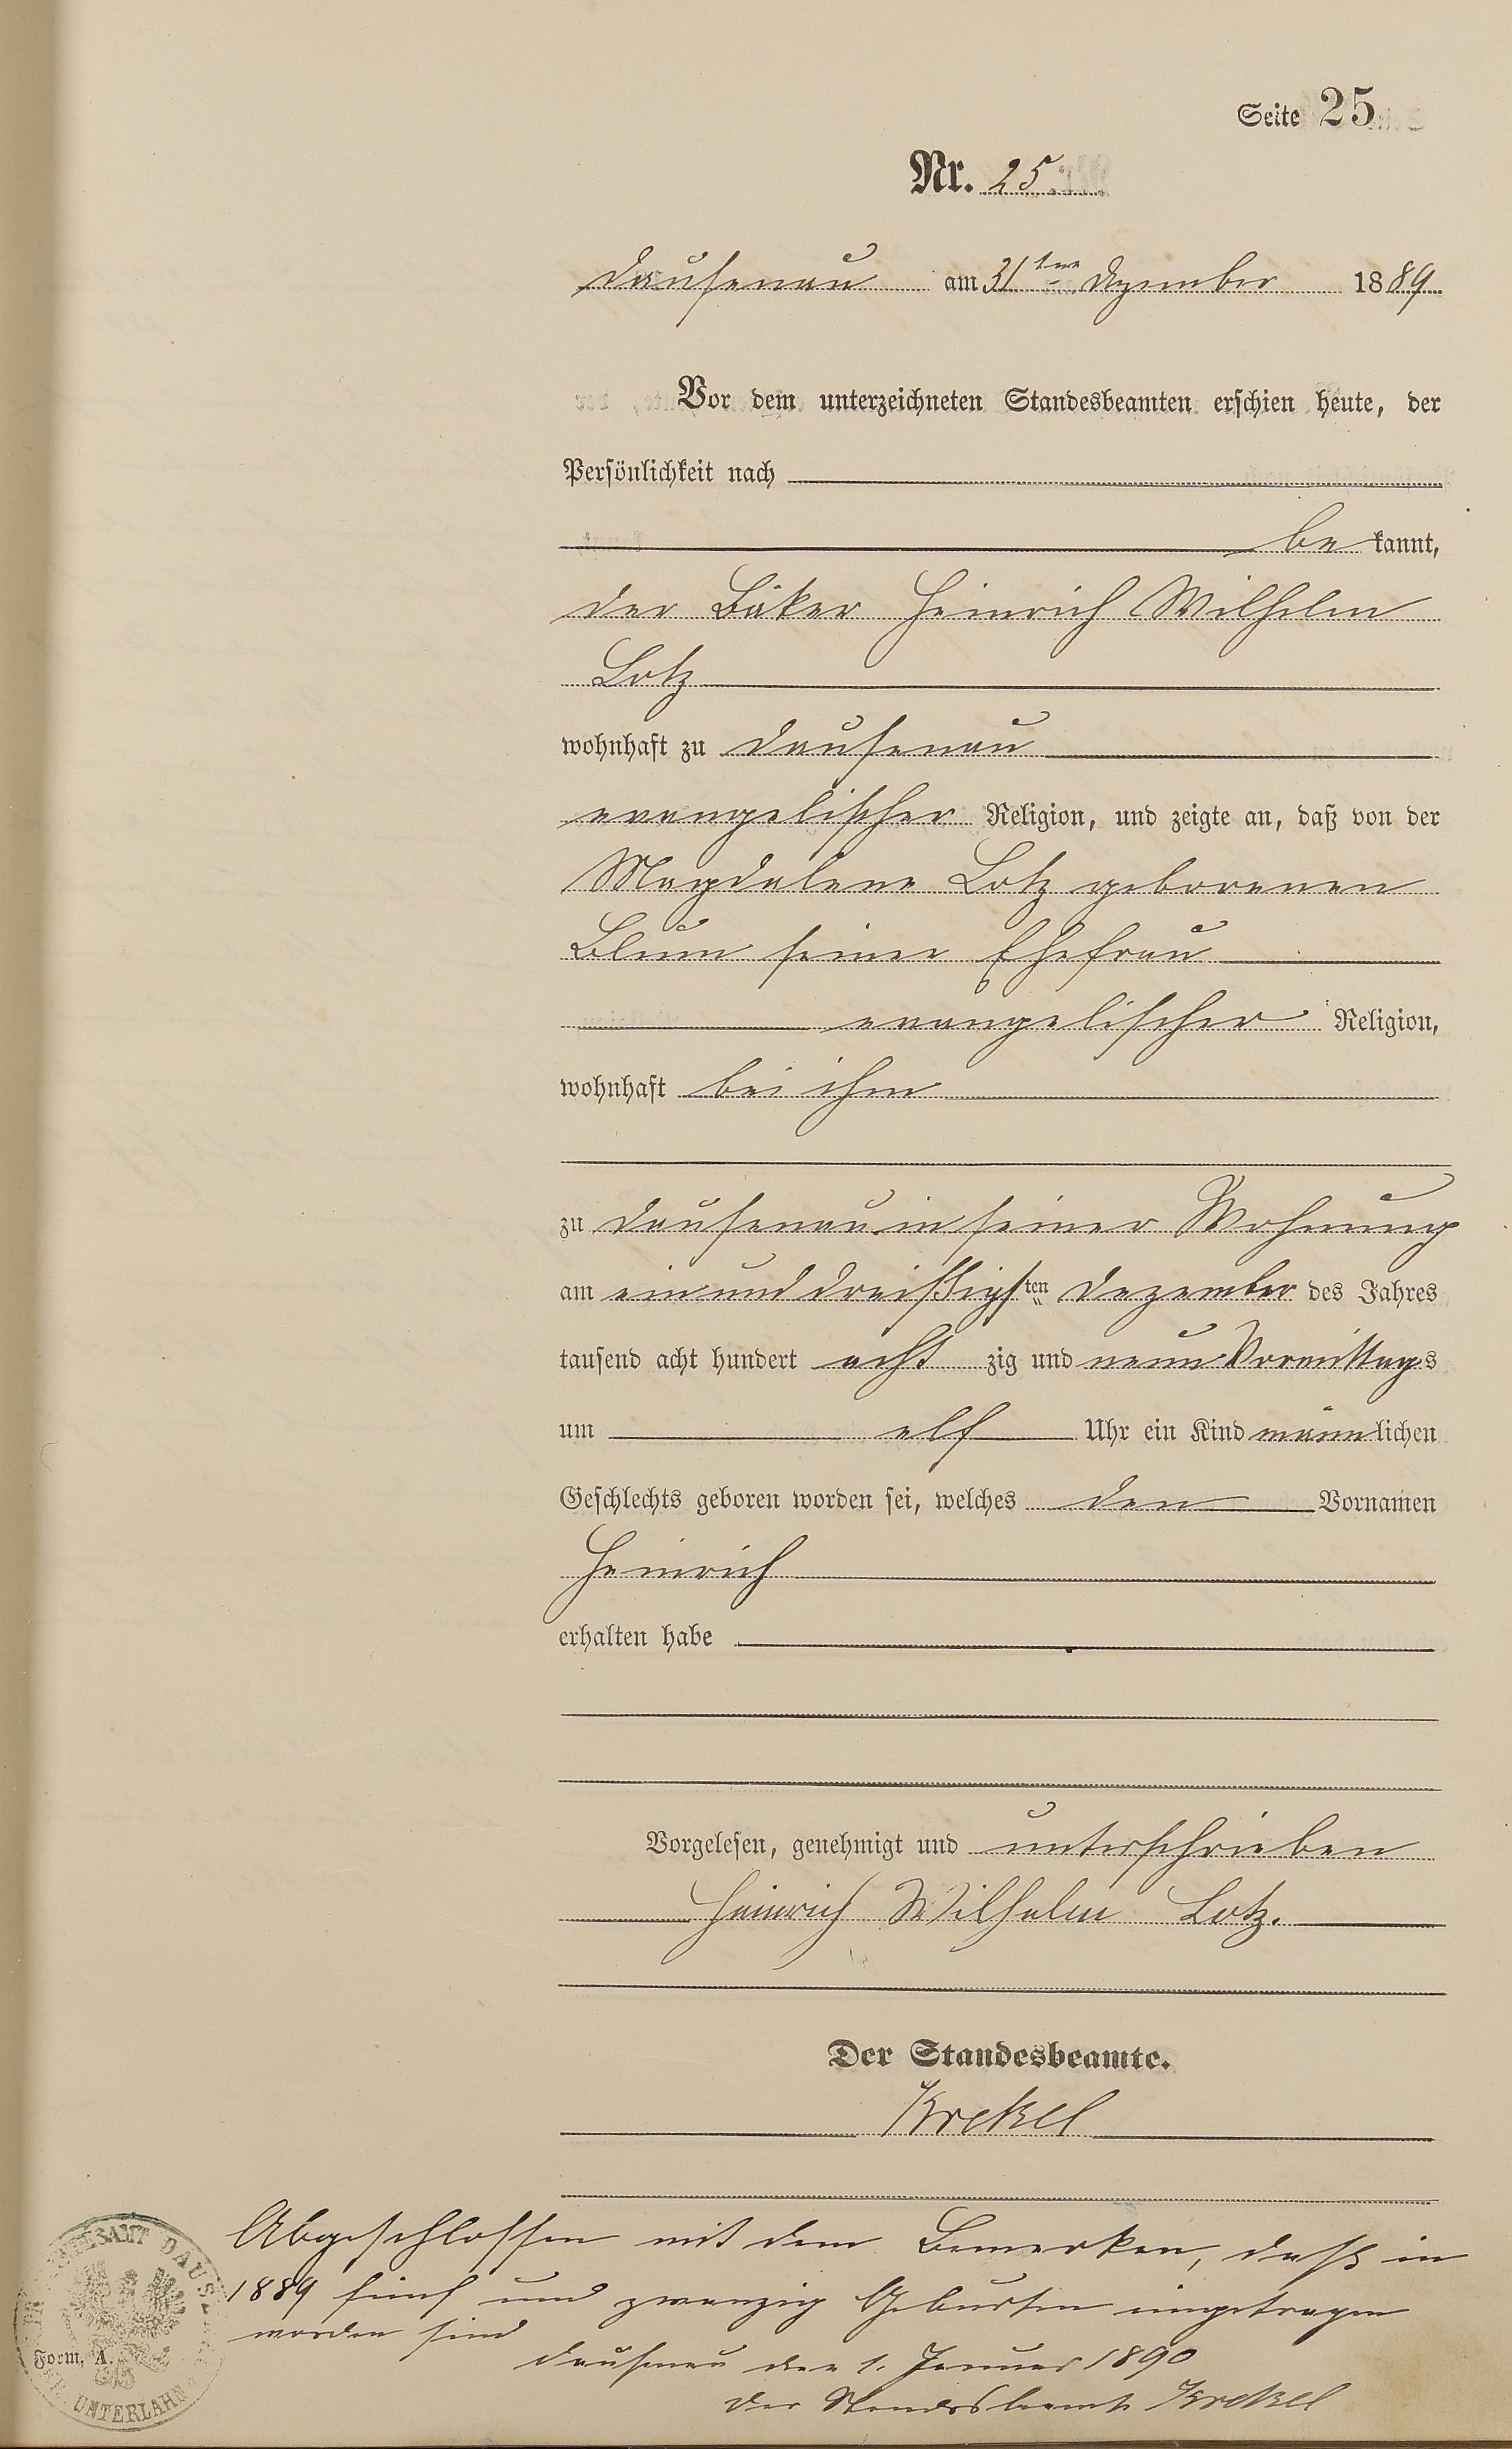 Seite 25.
Nr. 25.
Dausenau am 31ten Dezember 1889
Vor dem unterzeichneten Standesbeamten erschien heute, der
Persönlichkeit nach
be kannt,
der Bäker Heinrich Wilhelm
Lotz
wohnhaft zu Dausenau
evangelischer Religion, und zeigte an, daß von der
Magdalene Lotz geborenen
Blum seiner Ehefrau
evangelischer Religion,
wohnhaft bei ihm
zu Dausenau in seiner Wohnung
am ein und dreißigsten Dezember des Jahres
tausend acht hundert acht zig und neun Vormittags
um elf Uhr ein Kind männlichen
Geschlechts geboren worden sei, welches den Vornamen
Heinrich
erhalten habe
Vorgelesen, genehmigt und unterschrieben
Heinrich Wilhelm Lotz.
Der Standesbeamte.
Krekel
Abgeschlossen mit dem Bemerken, daß in
1889 fünf und zwanzig Geburten eingetragen
worden sind
Dausenau den 1. Januar 1890
Der Standesbeamte Krekel
Form. A.
UNTERLAHN